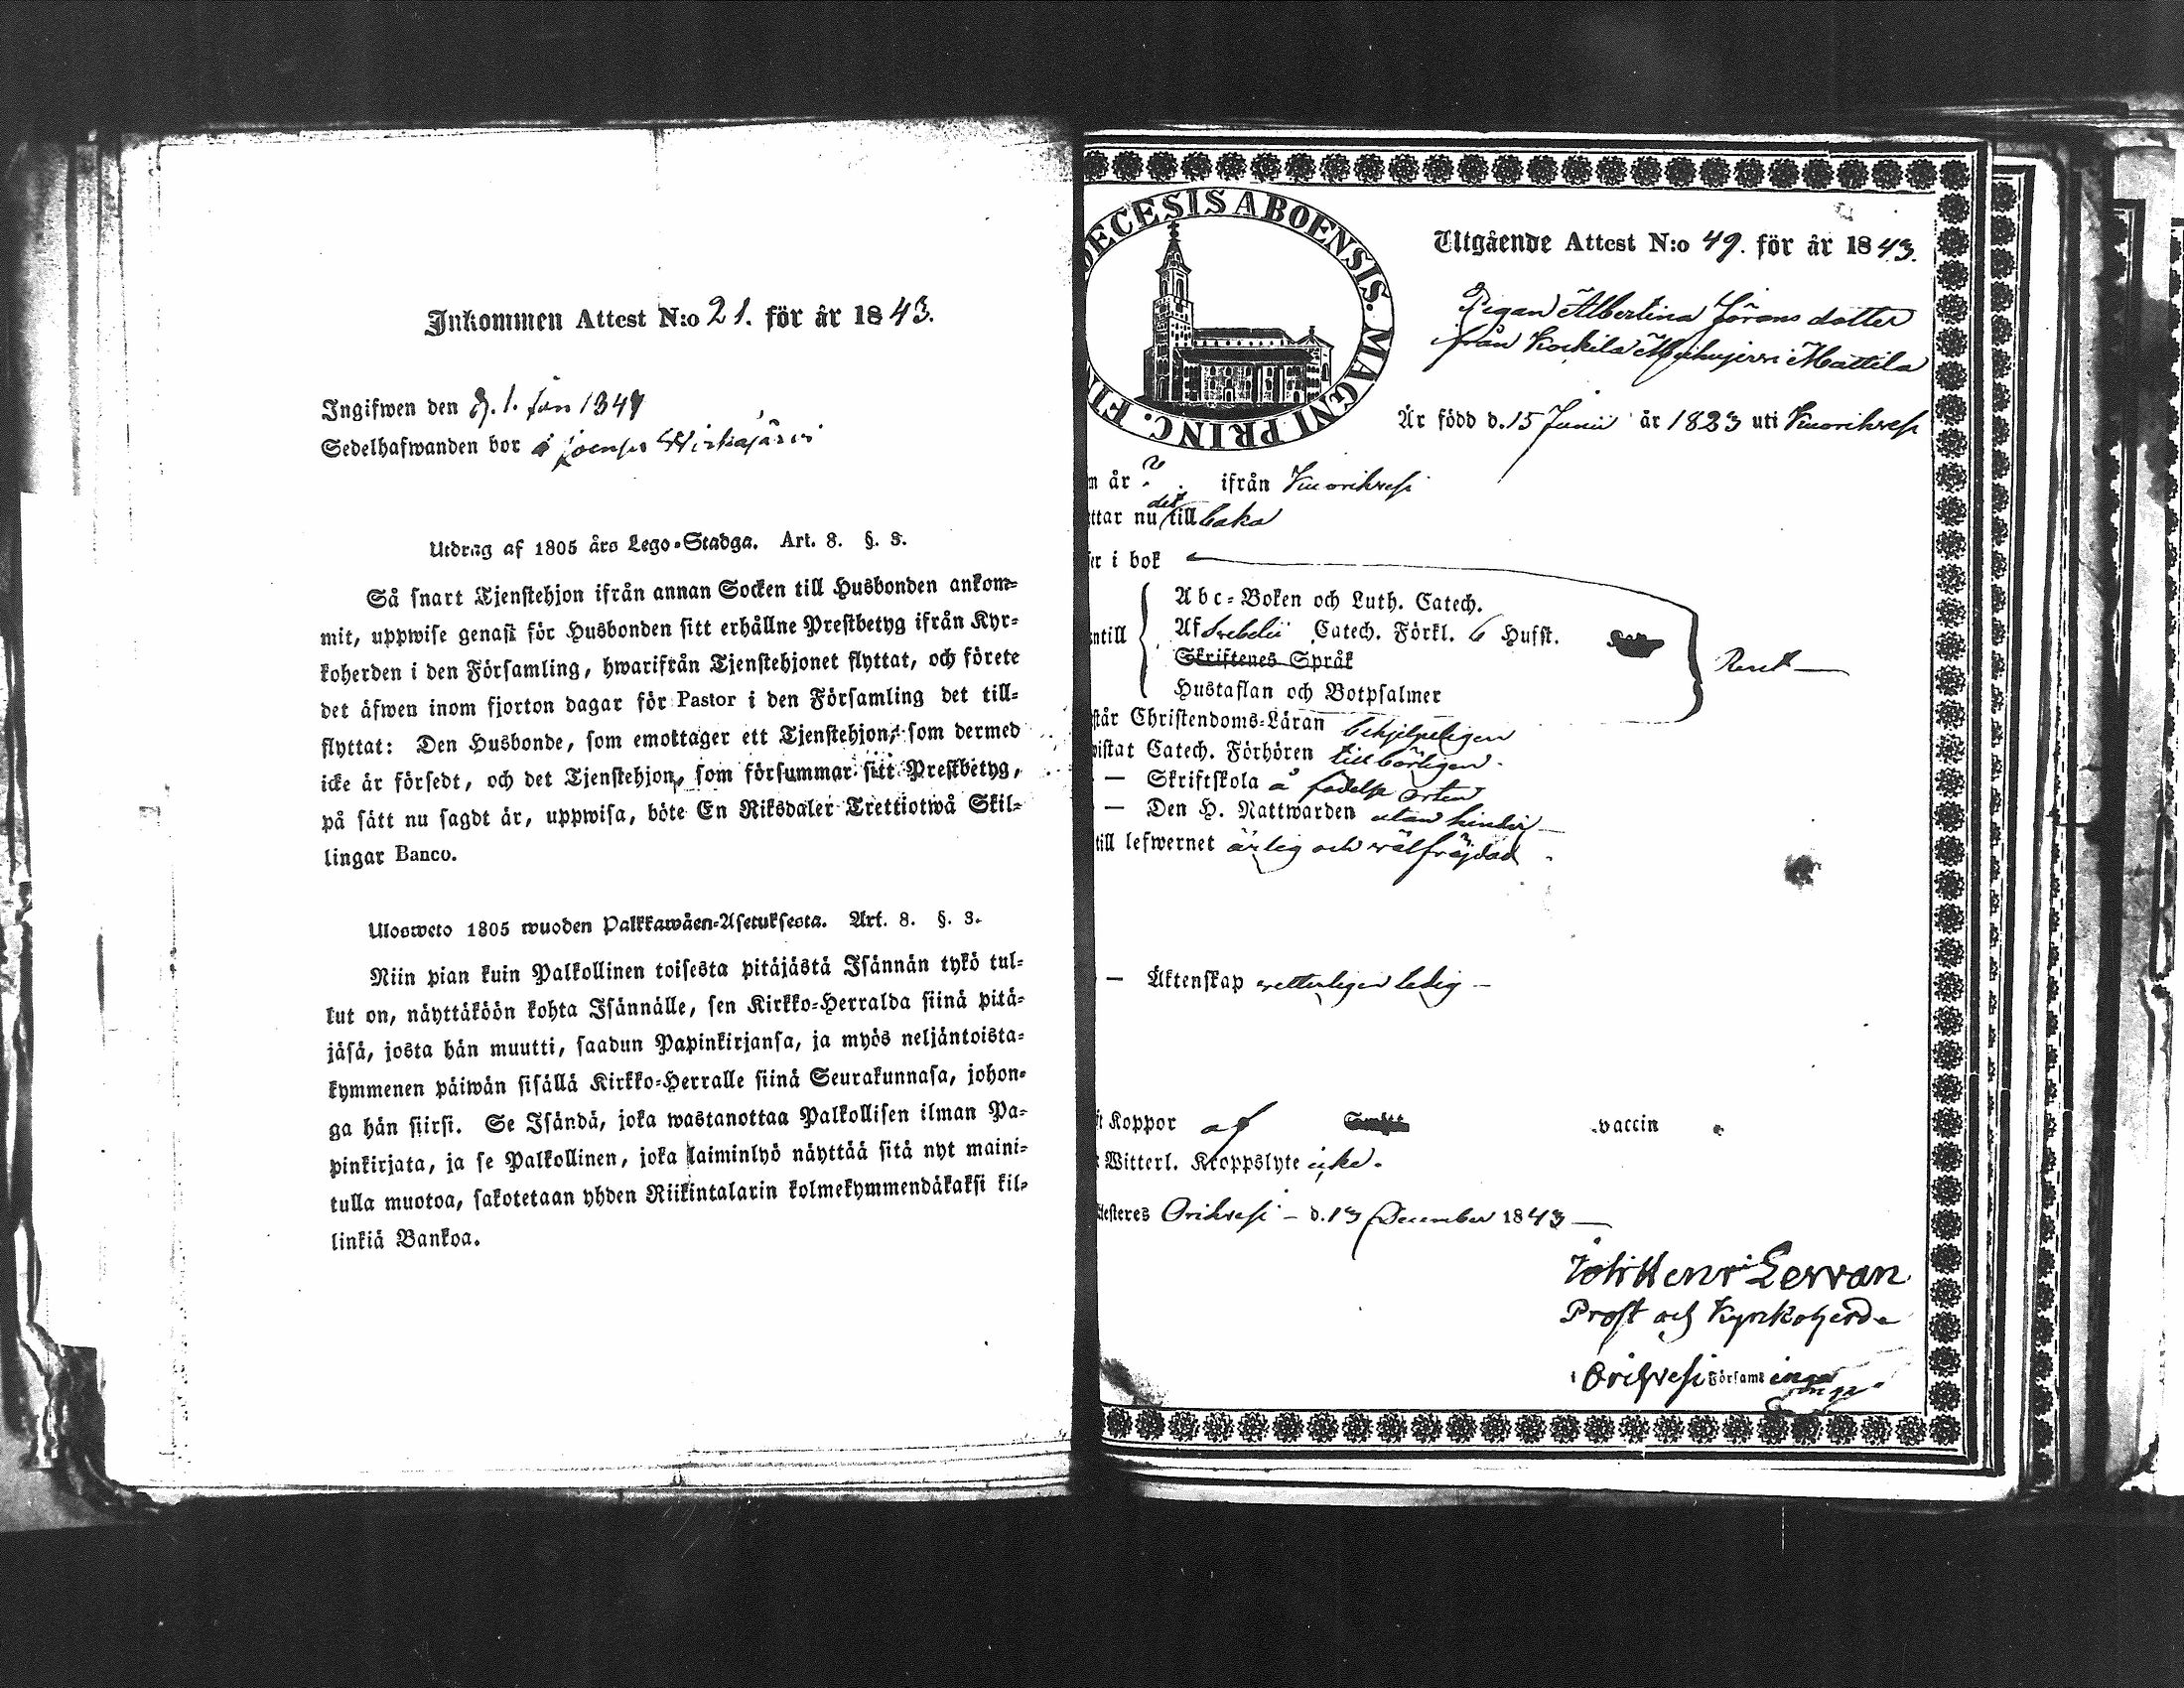 Inkommen Attest N:o 21. för år 1843.
Ingifwen den 1. Jan 1844
Sedelhafwanden bor
Utdrag af 1805 års Lego-Stadga. Art. 8. §. 3.
Så snart Tjenstehjon ifrån annan Socken till Husbonden ankom-
mit, uppwise genast för Husbonden sitt erhållne Prestbetyg ifrån Kyr-
koherden i den Församling, hwarifrån Tjenstehjonet flyttat, och förete
det äfwen inom fjorton dagar för Pastor i den Församling det till-
flyttat: Den Husbonde, som emottager ett Tjenstehjon, som dermed
icke är försedt, och det Tjenstehjon, som försummar sitt Prestbetyg,
på sätt nu sagdt är, uppwisa, böte En Riksdaler Trettiotwå Skil-
lingar Banco.
Ulosweto 1805 wuoden Palkkawäen-Asetuksesta. Art. 8. §. 3.
Niin pian kuin Palkollinen toisesta pitäjästä Isännän tykö tul-
lut on, näyttäköön kohta Isännälle, sen Kirkko-Herralda siinä pitä-
jäsä, josta hän muutti, saadun Papinkirjansa, ja myös neljäntoista-
kymmenen päiwän sisällä Kirkko-Herralle siinä Seurakunnasa, johon-
ga hän siirsi. Se Isändä, joka wastanottaa Palkollisen ilman Pa-
pinkirjata, ja se Palkollinen, joka laiminlyö näyttää sitä nyt maini-
tulla muotoa, sakotetaan yhden Riikintalarin kolmekymmendäkaksi kil-
linkiä Bankoa.
DECESIS ABOENSIS. MAGNI PRINC. FIN
Utgående Attest N:o 49. för år 1843.
Pigan Albertina Jörans dotter
från Mattila
Är född d. 15 Junii år 1823 uti Kuorihvesi
m år ? ifrån Kuorihvesi
ttar nu dit tillbaka
er i bok
Abc-Boken och Luth. Catech.
ntill Af Svebelii Catech. Förkl. 6 Hufst.
Skriftenes Språk
Hustaflan och Botpsalmer
står Christendoms-Läran behjelpeligen
wistat Catech. Förhören tillbörligen.
— Skriftskola å födelse orten
— Den H. Nattwarden utan hinder
till lefwernet ärlig och wälfräjdad
— Äktenskap wetterligen ledig —
ft Koppor af vaccin
Witterl. Kroppslyte icke.
ttesteres Orihvesi — d. 13 December 1843 —
Joh: Henr: Lervan
Prost och Kyrkoherde
i Orihvesi Församl